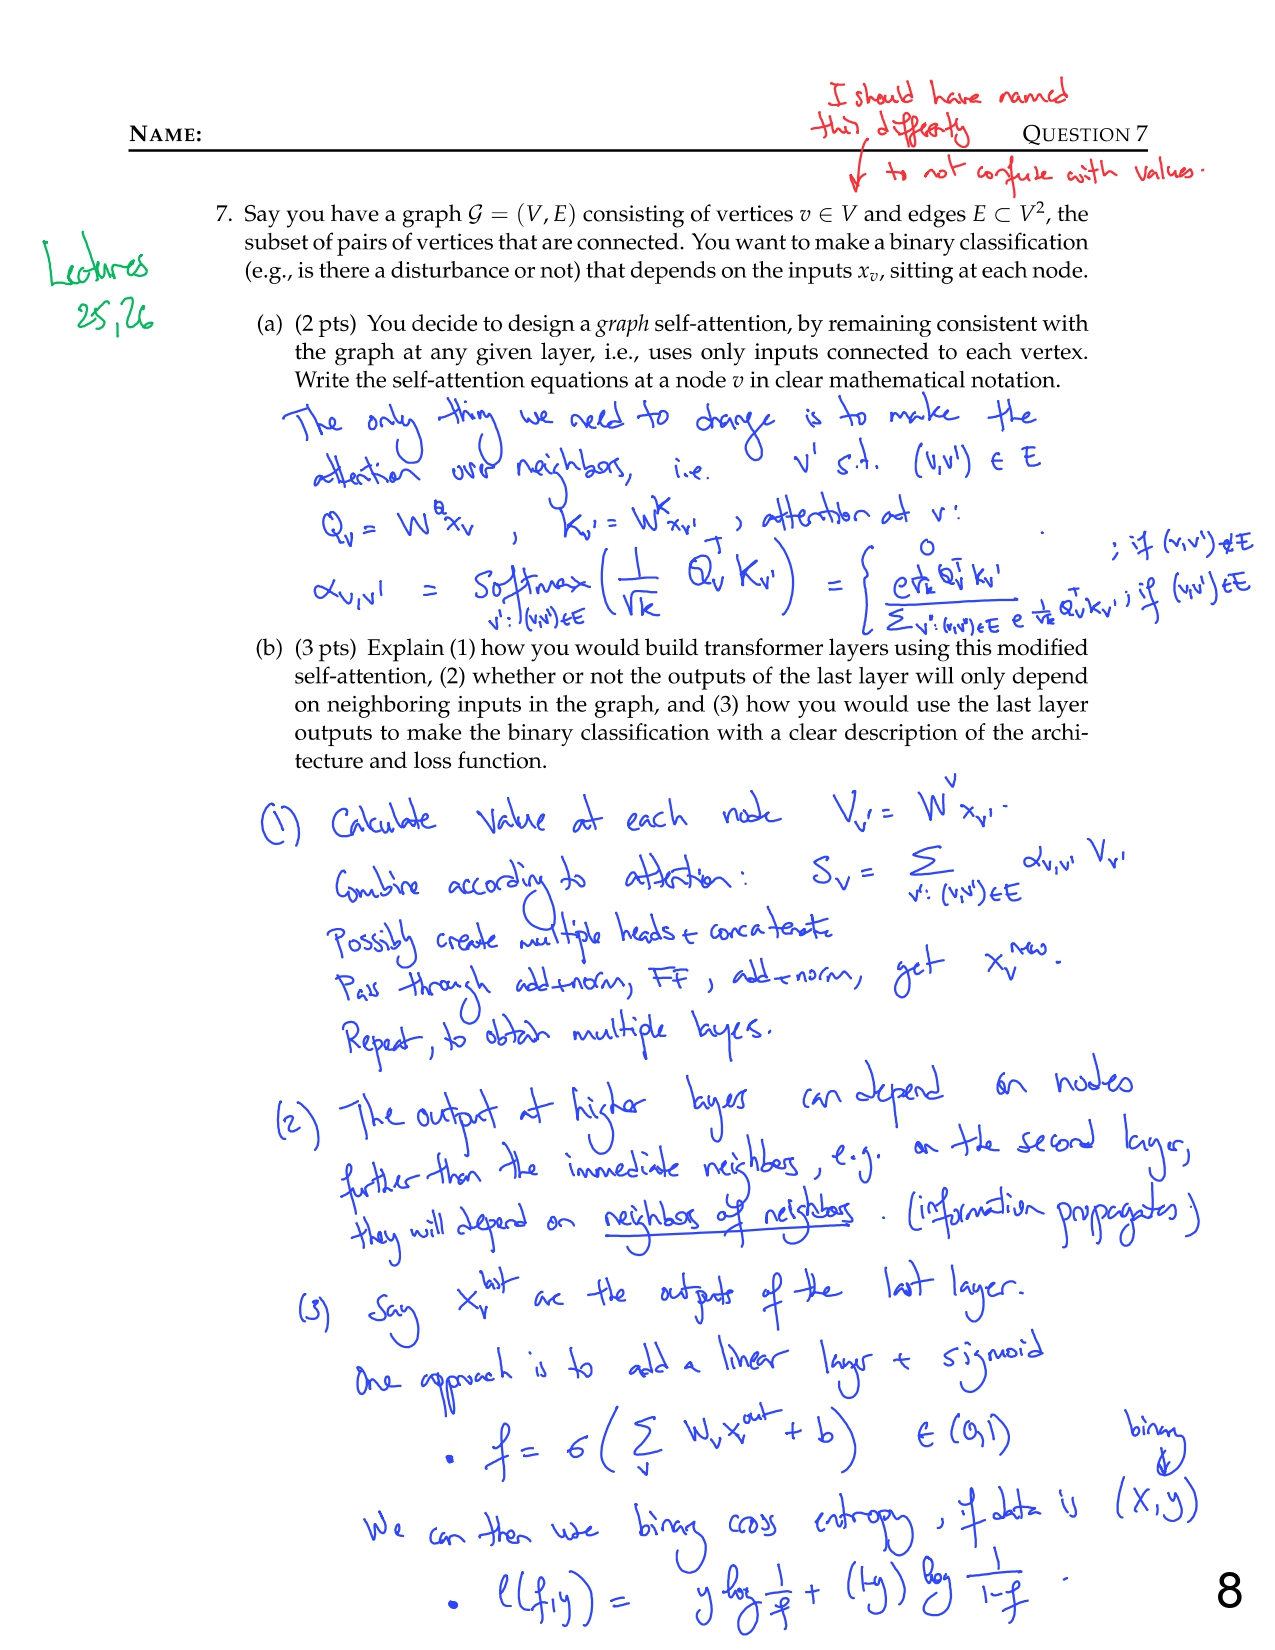 I should have named
this differently
NAME: QUESTION 7
to not confuse with values.
7. Say you have a graph 𝒢 = (V, E) consisting of vertices v ∈ V and edges E ⊂ V², the
subset of pairs of vertices that are connected. You want to make a binary classification
(e.g., is there a disturbance or not) that depends on the inputs xᵥ, sitting at each node.
Lectures
25, 26
(a) (2 pts) You decide to design a graph self-attention, by remaining consistent with
the graph at any given layer, i.e., uses only inputs connected to each vertex.
Write the self-attention equations at a node v in clear mathematical notation.
The only thing we need to change is to make the
attention over neighbors, i.e. v' s.t. (v,v') ∈ E
Q_v = W^Q x_v , K_v' = W^K x_v' , attention at v:
α_{v,v'} = Softmax_{v': (v,v')∈E} ( 1/√k Q_v^T K_v' ) = { 0 ; if (v,v') ∉ E
e^{1/√k Q_v^T K_v'} / Σ_{v'': (v,v'')∈E} e^{1/√k Q_v^T K_v''} ; if (v,v') ∈ E
(b) (3 pts) Explain (1) how you would build transformer layers using this modified
self-attention, (2) whether or not the outputs of the last layer will only depend
on neighboring inputs in the graph, and (3) how you would use the last layer
outputs to make the binary classification with a clear description of the archi-
tecture and loss function.
(1) Calculate Value at each node V_v' = W^V x_v'.
Combine according to attention: S_v = Σ_{v': (v,v')∈E} α_{v,v'} V_v'
Possibly create multiple heads + concatenate
Pass through add+norm, FF, add+norm, get x_v^new.
Repeat, to obtain multiple layers.
(2) The output at higher layers can depend on nodes
further than the immediate neighbors, e.g. on the second layer,
they will depend on neighbors of neighbors. (information propagates.)
(3) Say x_v^last are the outputs of the last layer.
One approach is to add a linear layer + sigmoid
• f = σ ( Σ_v W_v x_v^out + b ) ∈ (0,1)
binary
We can then use binary cross entropy, if data is (x,y)
• ℓ(f,y) = y log 1/f + (1-y) log 1/(1-f) .
8